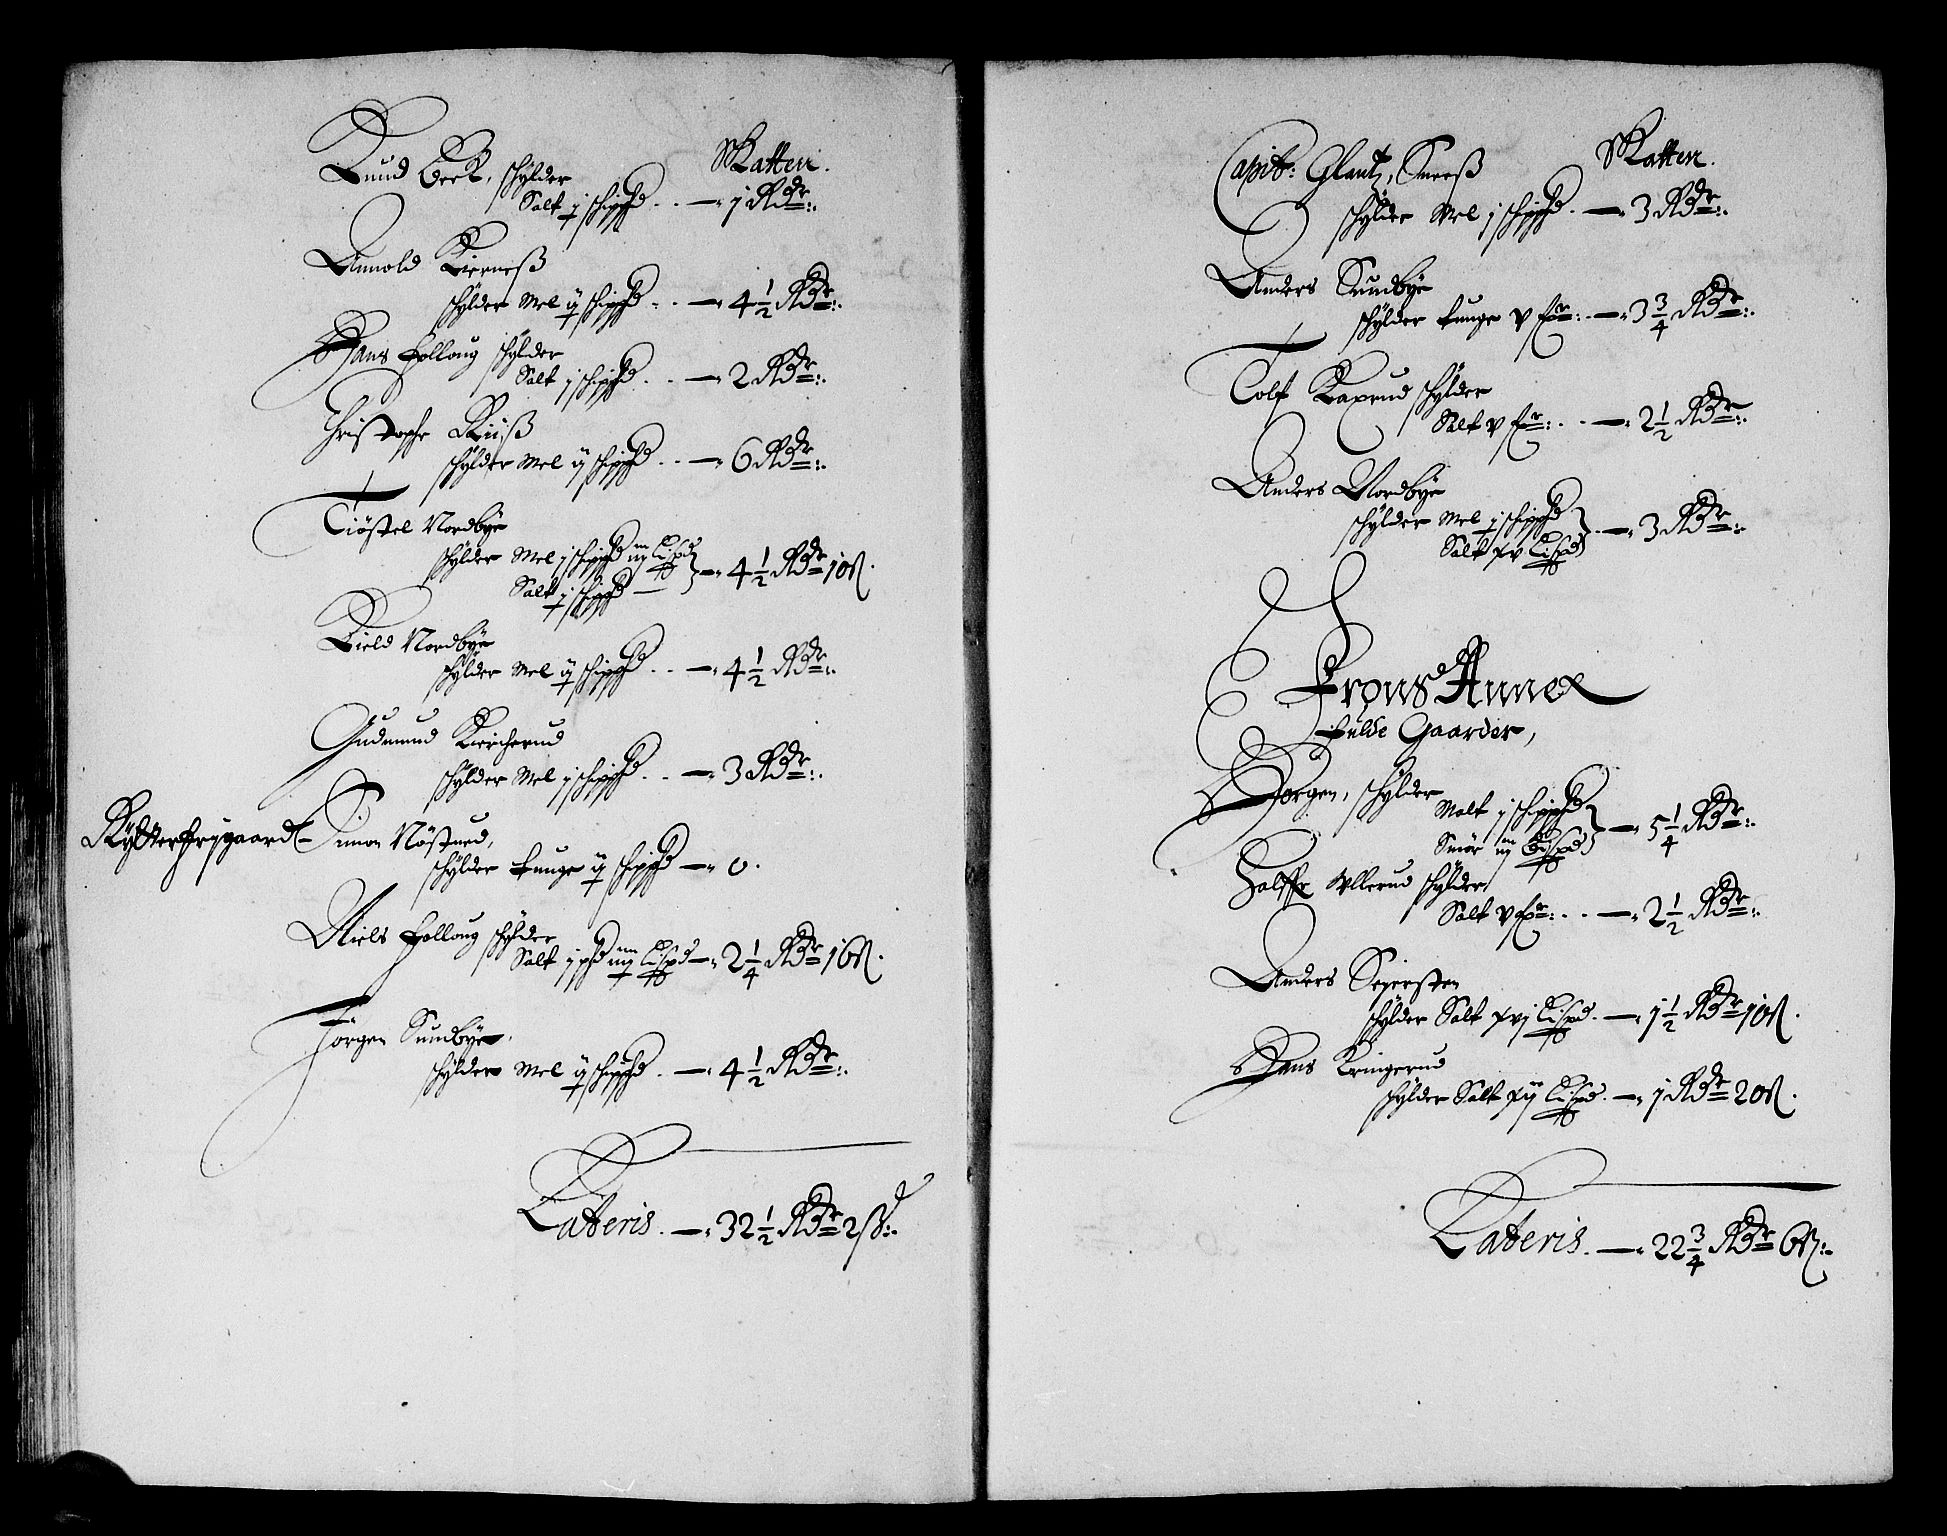 Skatten.
Knud Beek, schylder
Salt j schippd .. — 1 Rdr:
Annold Kierneß
schylder Mel ij schippd .. — 4 1/2 Rdr:
Hans Hollaug schylder
Salt j schippd .. — 2 Rdr:
Christopher Riiß
schylder Mel ij schippd .. — 6 Rdr:
Tiöstel Nordbye
schylder Mel j schippd iij Lispd
Salt j schippd — 4 1/2 Rdr 10 ß.
Kield Nordbye
schylder Mel ij schippd .. — 4 1/2 Rdr:
Gudmund Kircherud
schylder Mel j schippd .. — 3 Rdr:
Rytterfrygaard — Simon Nöstued,
schylder tunge ij schippd — 0.
Niels Hollaug schylder
Salt j pd iiij Lispd — 2 1/4 Rdr 16 ß.
Jörgen Sundbye,
schylder Mel ij schippd . — 4 1/2 Rdr:
Lateris. — 32 1/2 Rdr 2 ß:
Skatten.
Capit: Glautz, Sneeß
schylder Mel j schippd . — 3 Rdr:
Anders Sundbye
schylder tunge v fr: . — 3 3/4 Rdr:
Tolf Kaxrud schylder
Salt v fr: .. — 2 1/2 Rdr:
Anders Nordbye
schylder Mel j schippd
Salt xv Lispd — 3 Rdr:
Frons Annex
Fulde Gaarder,
Horgen, schylder
Malt j schippd
Smör iij Bispd — 5 1/4 Rdr:
Halffr Ullerud schylder
Salt v fr: .. — 2 1/2 Rdr:
Anders Seiersten
schylder Salt xvj Lispd . — 1 1/2 Rdr 10 ß.
Hans Kringerud
schylder Salt xij Lispd . — 1 Rdr 20 ß.
Lateris. — 22 3/4 Rdr 6 ß: